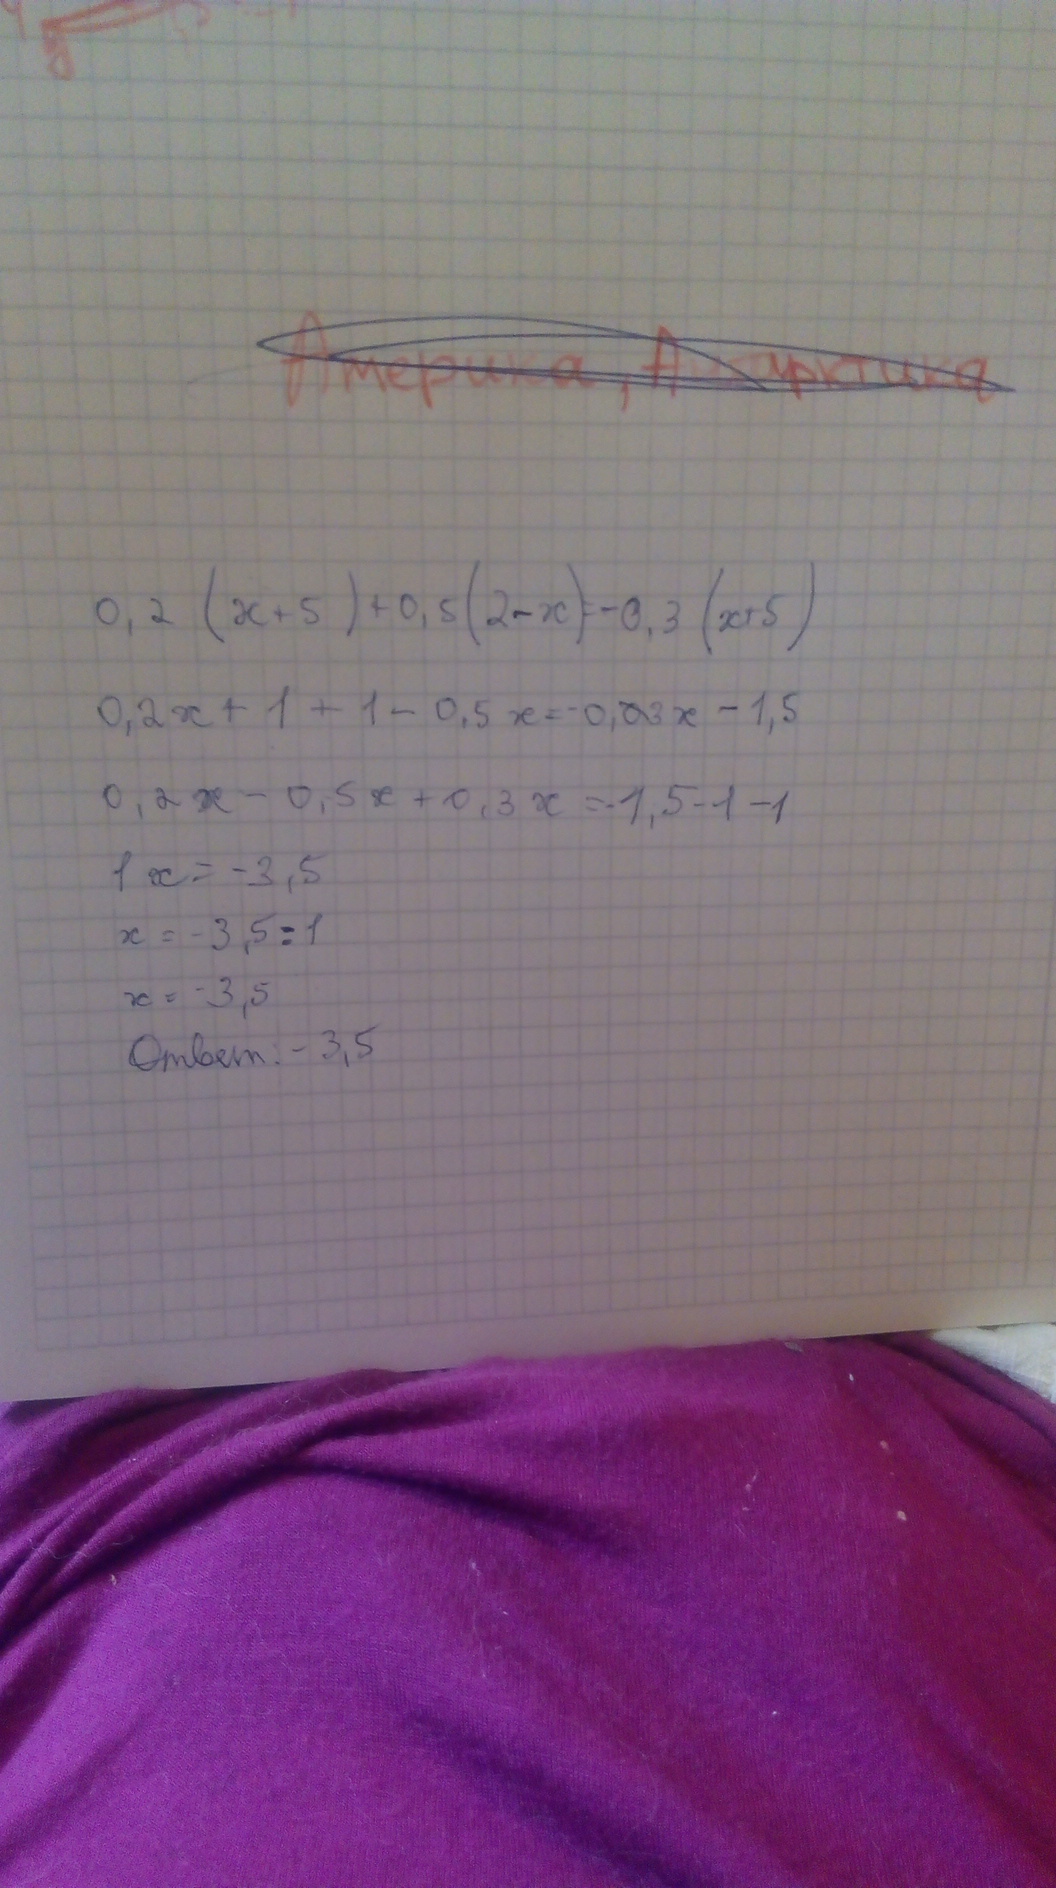 Америка, Антарктика
0,2 (x+5)+0,5(2-x)=-0,3(x+5)
0,2x+1+1-0,5x=-0,03x-1,5
0,2x-0,5x+0,3x=-1,5-1-1
1x=-3,5
x=-3,5:1
x=-3,5
Ответ:-3,5